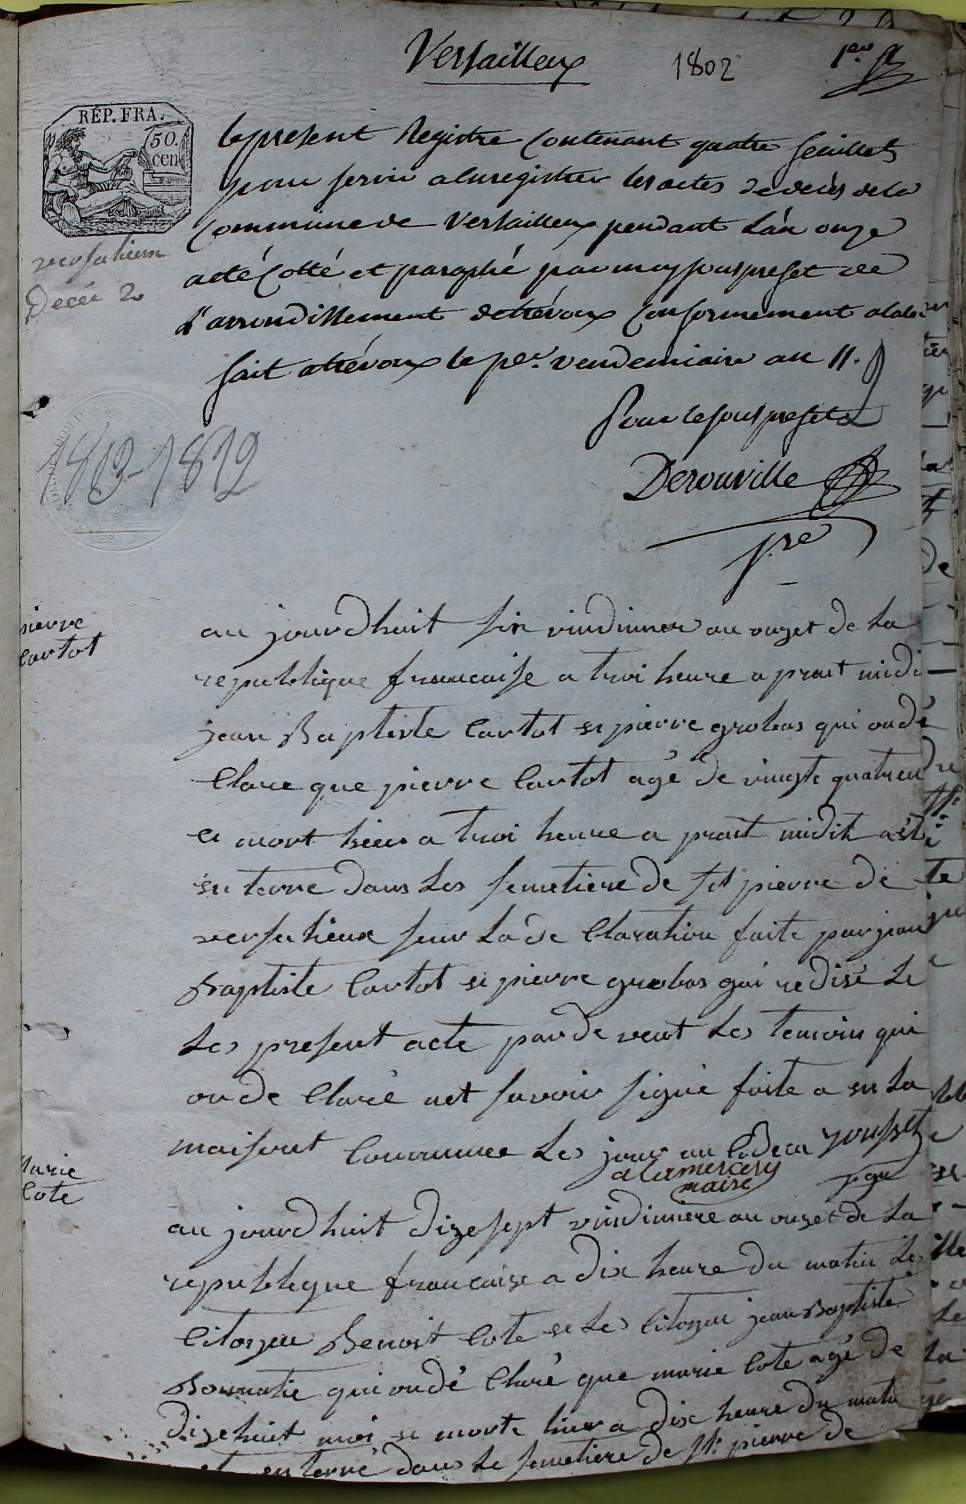 Versailleux
1802
1er
RÉP. FRA.
50.
cen
le present Registre Contenant quatre feuillets
pour servir a Enregistrer les actes de deces de la
Commune de Versailleux pendant L'an onze
a été Cotté et paraphé par moy sous prefet de
L'arrondissement de trévoux Conformement a la loi
fait a trévoux le per. vendemiaire an 11.
Pour le sous prefet
Derouville
versalieux
Decée 2
1813-1822
pierre
Cartot
au jourdhuit six vindimer au onzet de La
republique francaise a troi heure a prait midi
jean Baptiste Cartot se pierre grobas qui on dé
Clare que pierre Cartot agé de vingte quatre an
e mort hiere a troi heure a prait midit a été
en terre dans Les semetiere de st pierre de
versalieux seur La de Claration faite par jean
Baptiste Cartot se pierre grobas qui redisé Le
Les present acte par de vent Les temoin qui
on de Claré net savoir signé faite a en La
maisont Commune Les jour an
alamercery
maire
marie
Cote
au jourdhuit dizesept vindimiere au onzet de La
republeque francaise a dix heure du matin Le
Citoyen Benoit Cote se Le Citoyen jean Baptiste
qui on dé Claré que marie Cote agé de
dizehuit moi se morte hier a dix heure du matin
en terré dans Le semetiere de st pierre de